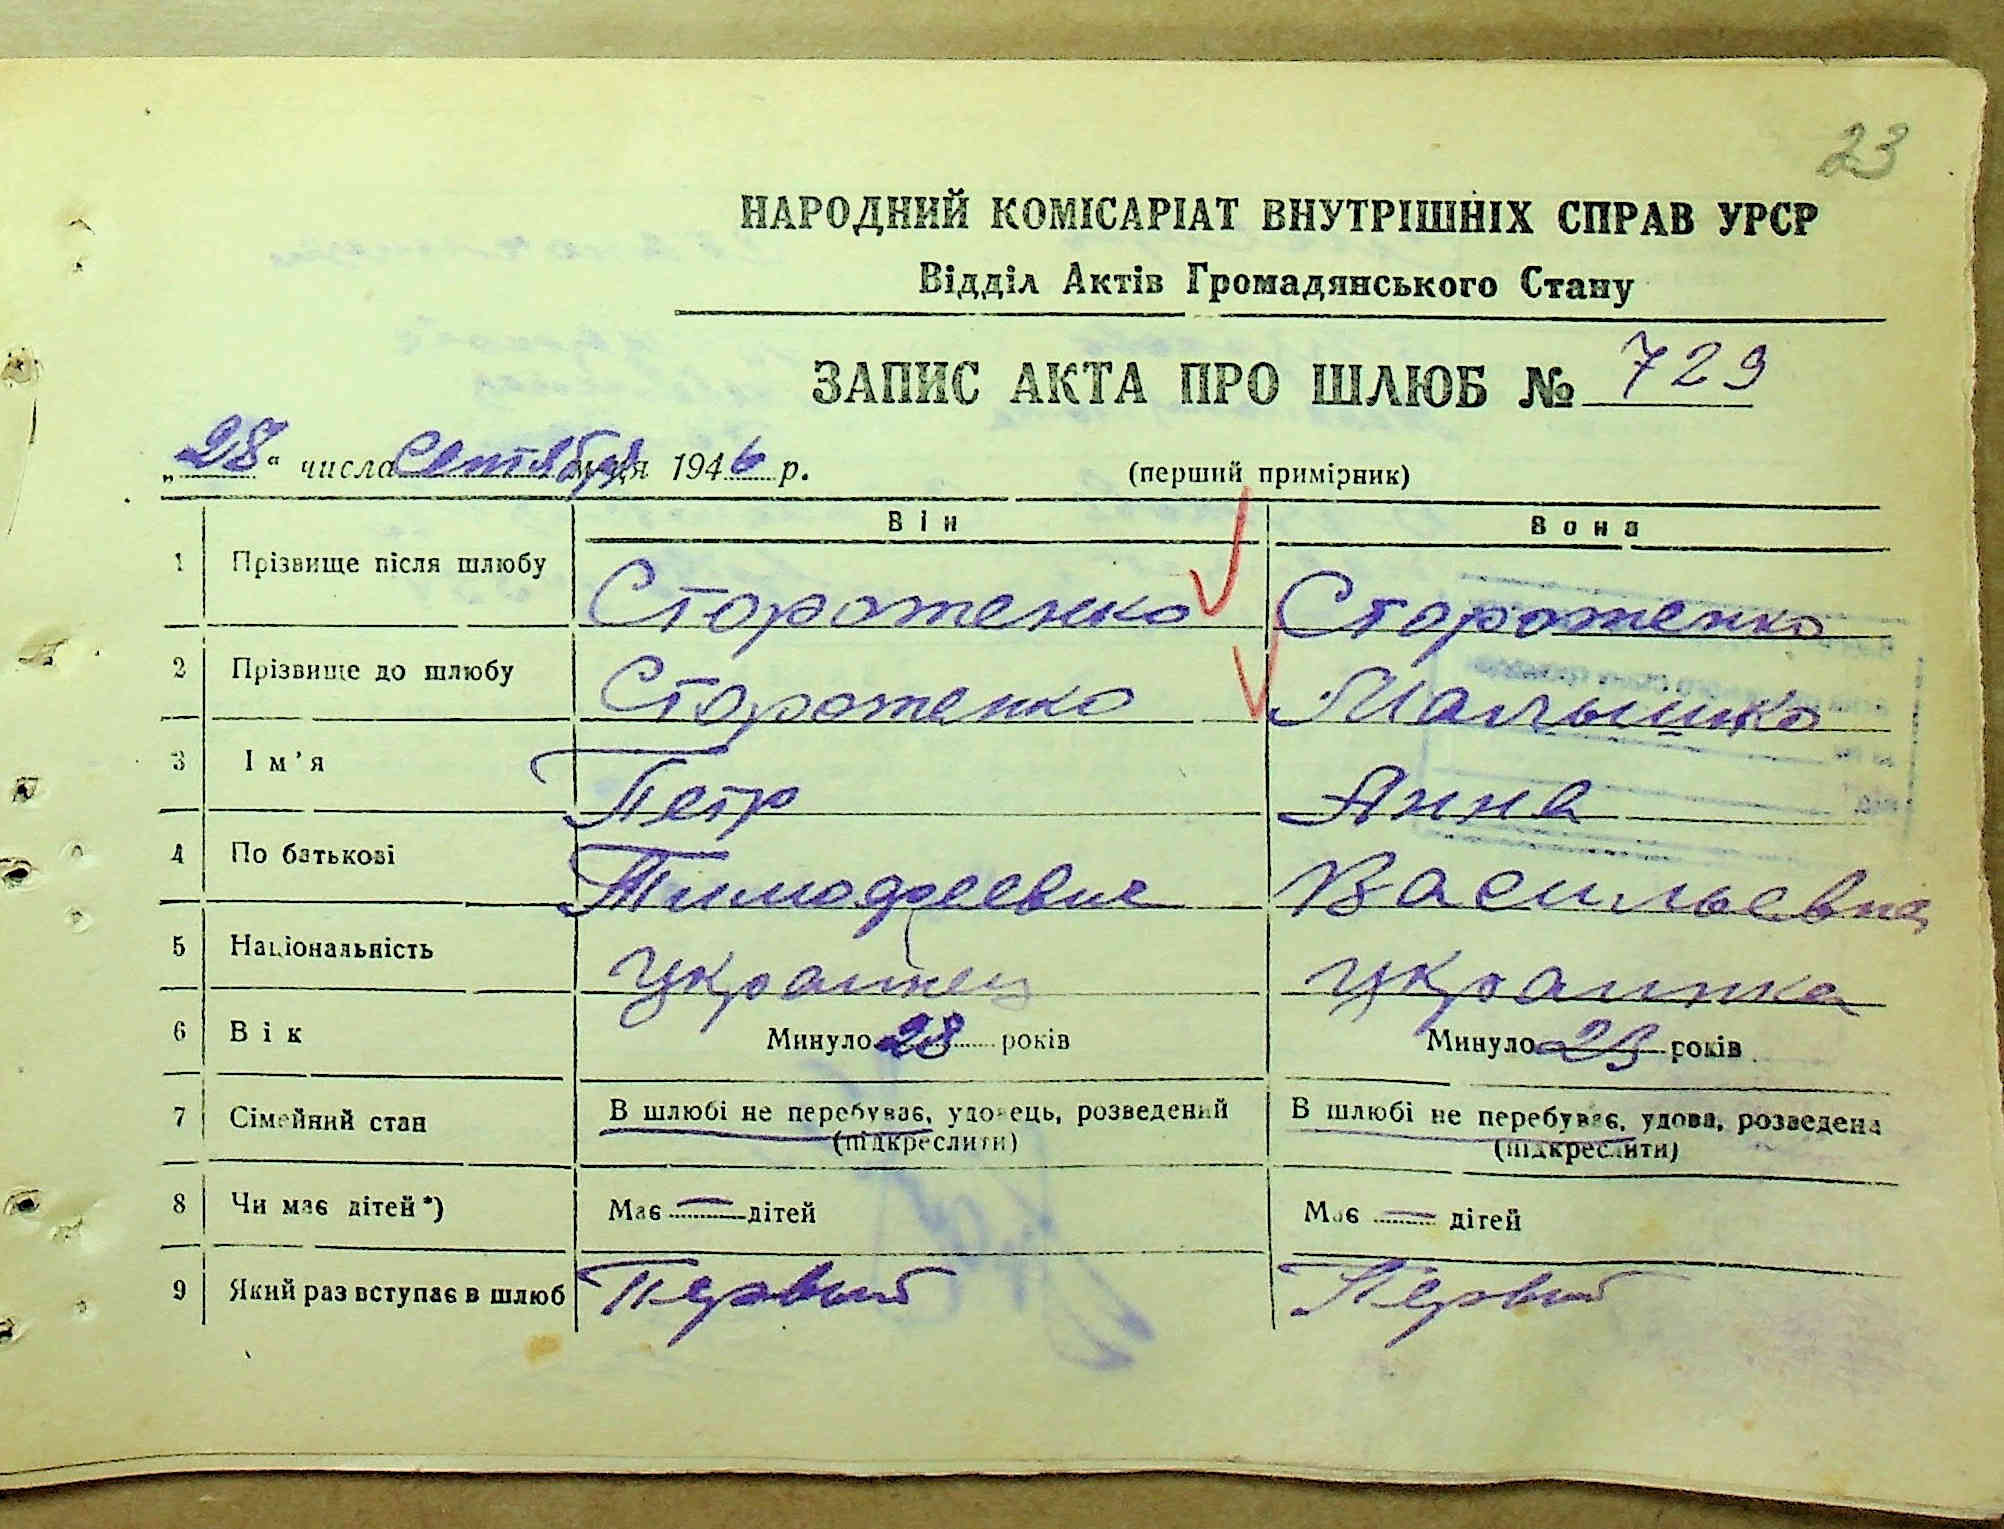 23
НАРОДНИЙ КОМІСАРІАТ ВНУТРІШНІХ СПРАВ УРСР
Відділ Актів Громадянського Стану
ЗАПИС АКТА ПРО ШЛЮБ № 729
„28“ числа Сентября м-ця 1946 р. (перший примірник)
Він Вона
1 Прізвище після шлюбу Стороженко Стороженко
2 Прізвище до шлюбу Стороженко Малышко
3 Ім’я Петр Анна
4 По батькові Тимофеевич Васильевна
5 Національність украинец украинка
6 Вік Минуло 28 років Минуло 23 років
7 Сімейний стан В шлюбі не перебуває, удовець, розведений В шлюбі не перебуває, удова, розведена
(підкреслити) (підкреслити)
8 Чи має дітей*) Має — дітей Має — дітей
9 Який раз вступає в шлюб Первый Первый